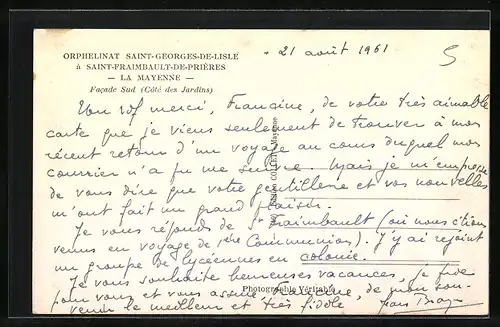 ORPHELINAT SAINT-GEORGES-DE-LISLE
à SAINT-FRAIMBAULT-DE-PRIÈRES
— LA MAYENNE —
Façade Sud (Côté des Jardins)
21 août 1961
5
Un merci, Francine, de votre très aimable
carte que je viens seulement de trouver à mon
récent retour d'un voyage au cours duquel mon
courrier n'a pu me suivre. Mais je m'empresse
de vous dire que votre gentillesse et vos nouvelles
m'ont fait un grand plaisir.
Je vous réponds de St Fraimbault (où nous étions
venus en voyage de 1ère Communion). J'y ai rejoint
un groupe de lycéennes en colonie.
Je vous souhaite heureuses vacances, je prie
pour vous et vous assure, Francine, de mon sou-
venir le meilleur et très fidèle
COLLET Mayenne
Photographie Véritable